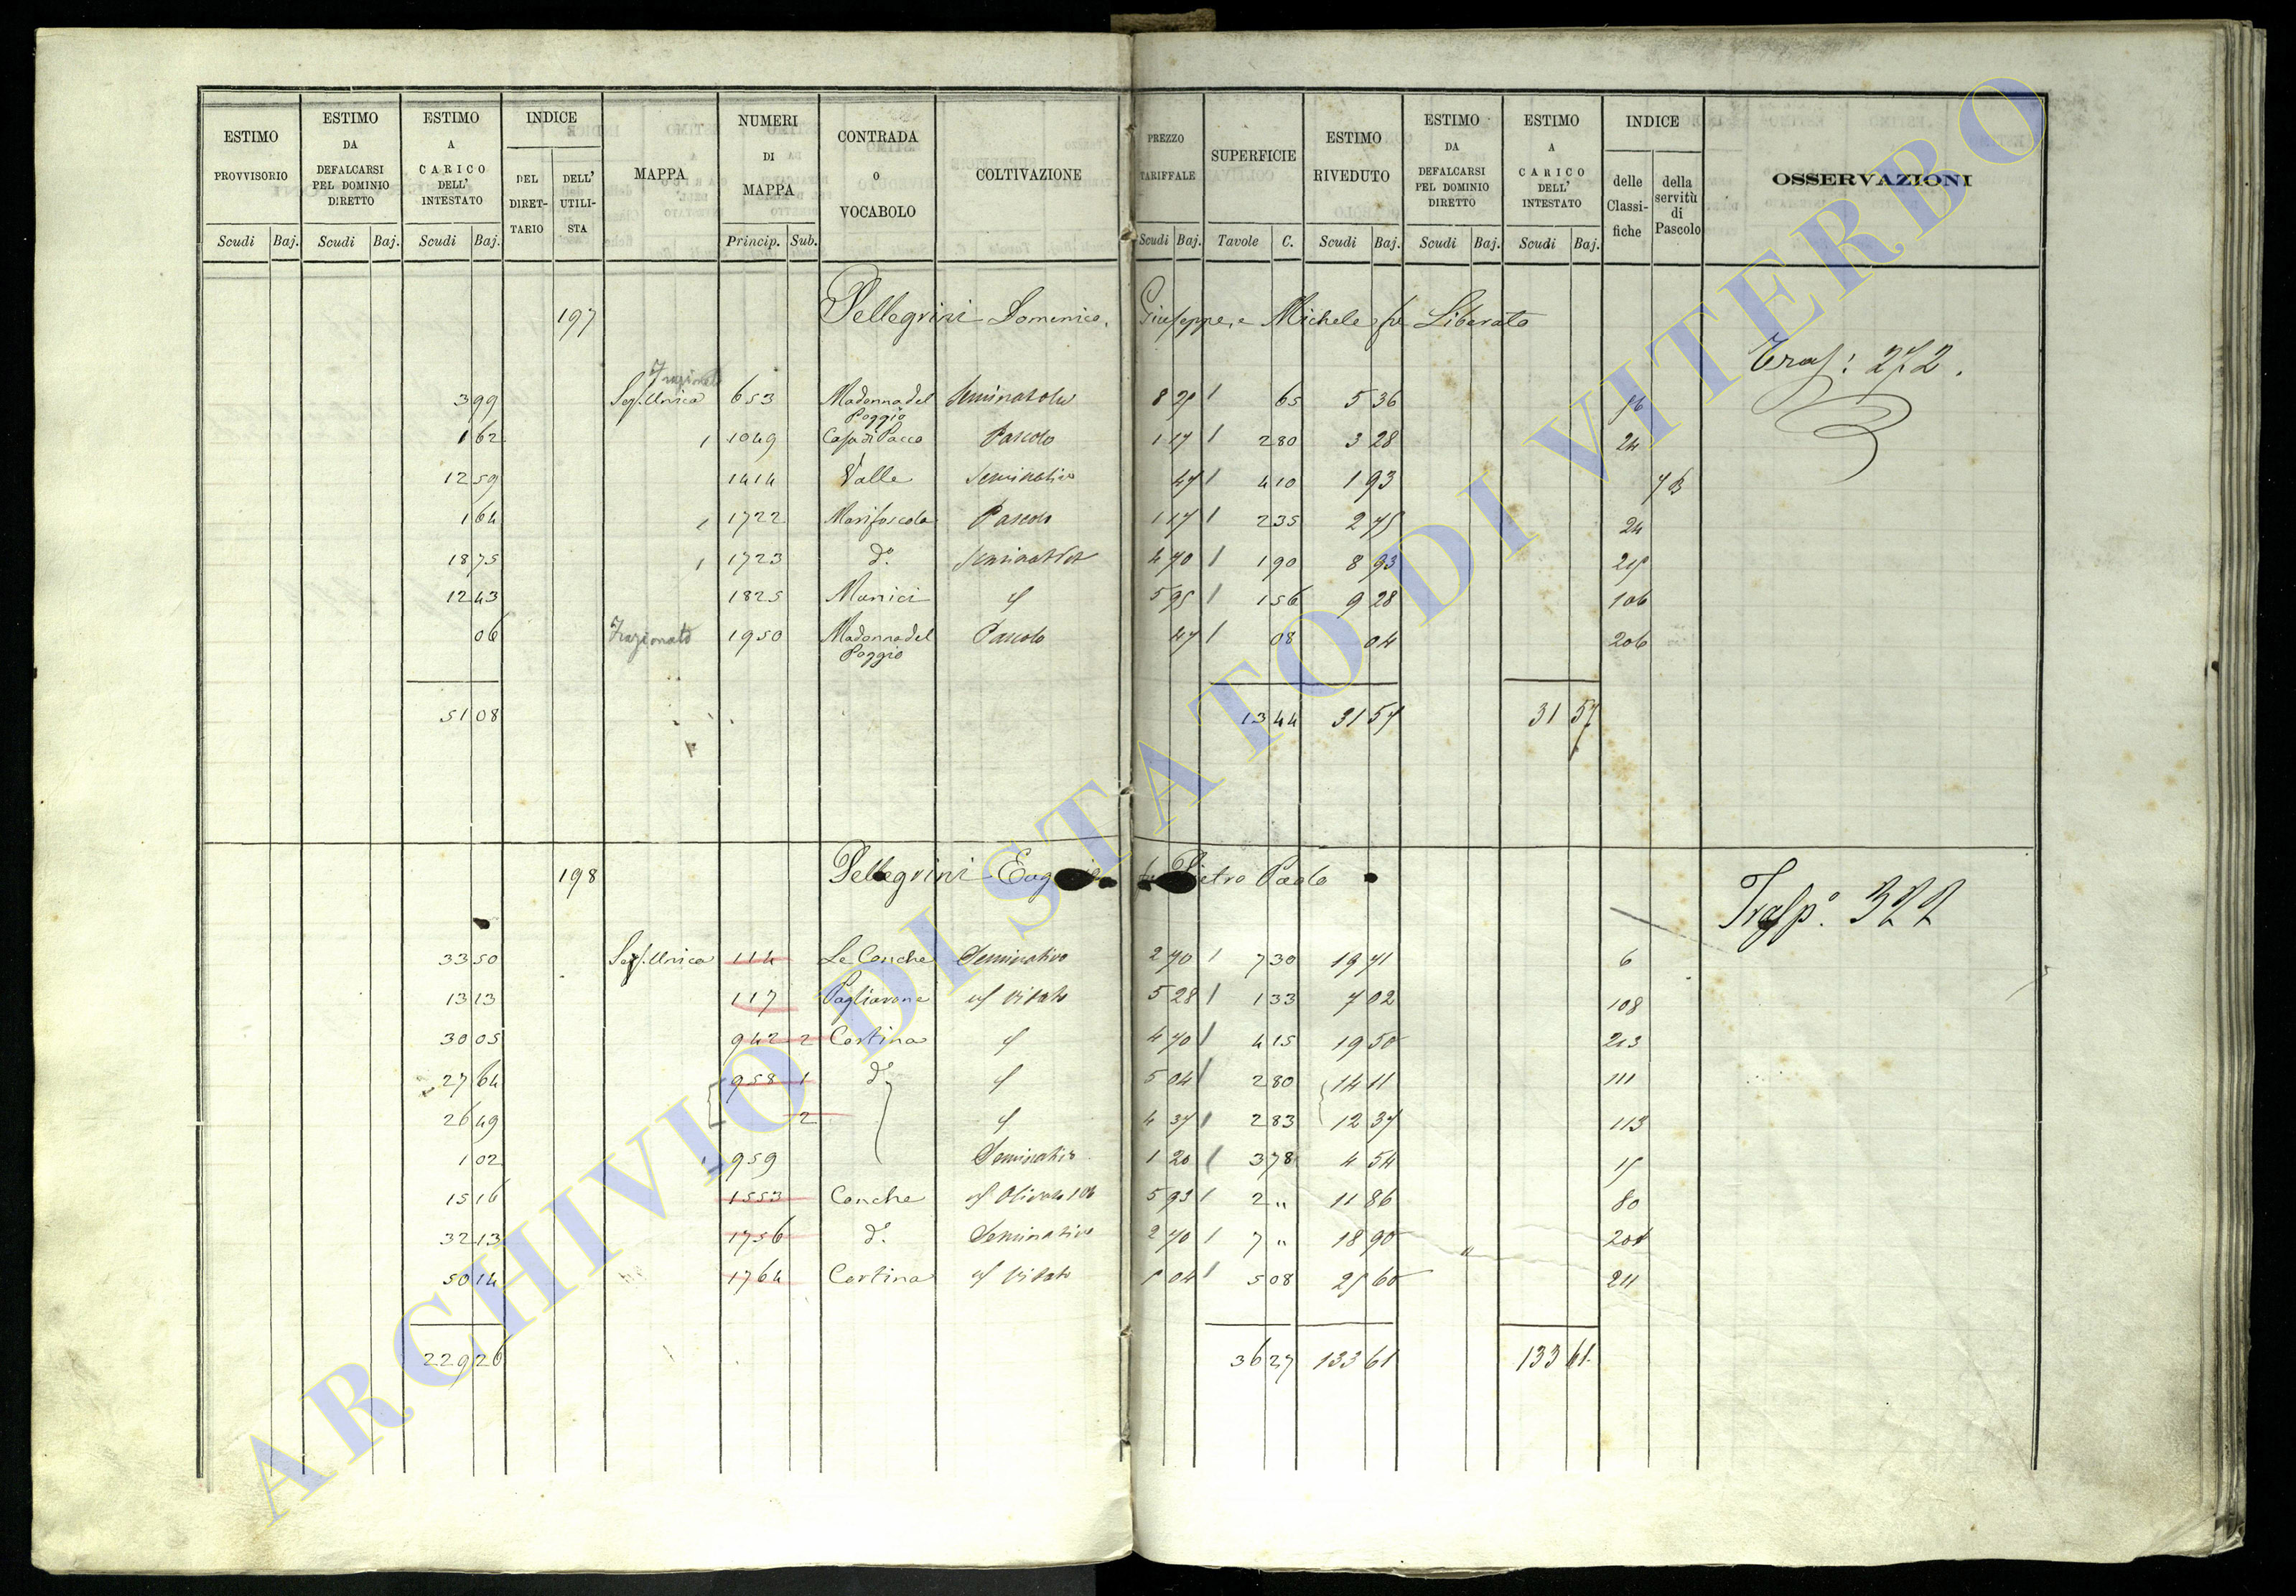 ESTIMO PROVVISORIO
ESTIMO DA DEFALCARSI PEL DOMINIO DIRETTO
ESTIMO A CARICO DELL' INTESTATO
INDICE DEL DIRET-TARIO DELL' UTILI-STA
MAPPA
NUMERI DI MAPPA
CONTRADA O VOCABOLO
COLTIVAZIONE
PREZZO TARIFFALE
SUPERFICIE
ESTIMO RIVEDUTO
ESTIMO DA DEFALCARSI PEL DOMINIO DIRETTO
ESTIMO A CARICO DELL' INTESTATO
INDICE delle Classi-fiche della servitù di Pascolo
OSSERVAZIONI
Scudi Baj. Scudi Baj. Scudi Baj. Princip. Sub. Scudi Baj. Tavole C. Scudi Baj. Scudi Baj. Scudi Baj.
197 Pellegrini Domenico, Giuseppe, e Michele fu Liberato
Frazionato
3 99 Sez. Unica 653 Madonna del Poggio 65 5 36
1 62 1049 Casa di Pacco Pascolo 1 17 2 80 3 28 24
12 59 1414 Valle Seminativo 47 4 10 1 93
1 64 1722 Pascolo 1 17 2 35 2 75 24
18 75 1723 d.º 4 70 1 90 8 93
12 43 1825 Manici 5 95 1 56 9 28 106
06 Frazionato 1950 Madonna del Poggio Pascolo 47 08 04 206
51 08 13 44 31 57 31 57
272.
198 Pellegrini fu Pietro Paolo
Trasp.º 322
33 50 Sez. Unica 114 Le Conche Seminativo 2 70 7 30 19 71 6
13 13 117 Pagliarone vitato 5 28 1 33 7 02 108
30 05 942 2 Cortina 4 70 4 15 19 50 213
27 64 958 1 d.º 5 04 2 80 14 11 111
26 49 2 4 37 2 83 12 37 113
1 02 959 Seminativo 1 20 3 78 4 54
15 16 1553 Conche 5 93 2 " 11 86 80
32 13 1756 d.º Seminativo 2 70 7 " 18 90
50 14 1764 Cortina vitato 5 04 5 08 25 60 211
229 26 36 27 133 61 133 61
ARCHIVIO DI STATO DI VITERBO